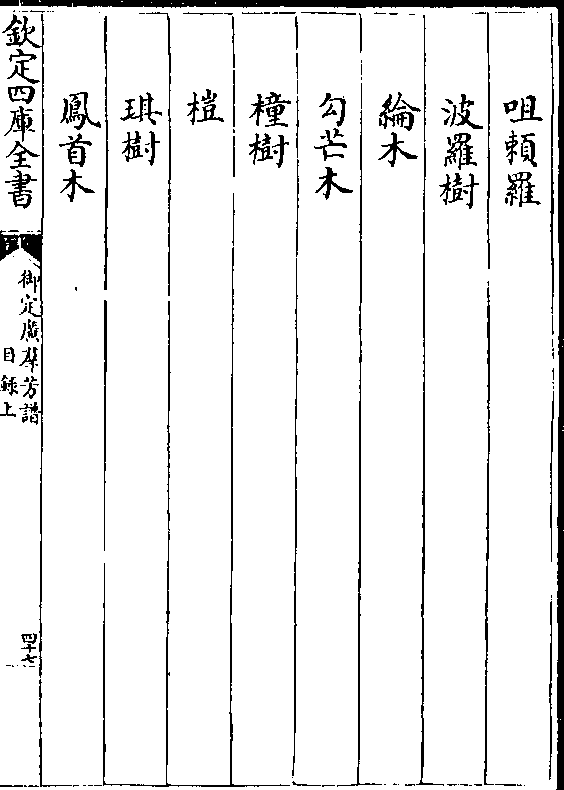 咀賴羅
波羅樹
綸木
勾芒木
橦樹
榿
琪樹
鳳首木
欽定四庫全書
御定廣羣芳譜
目録上
四十七